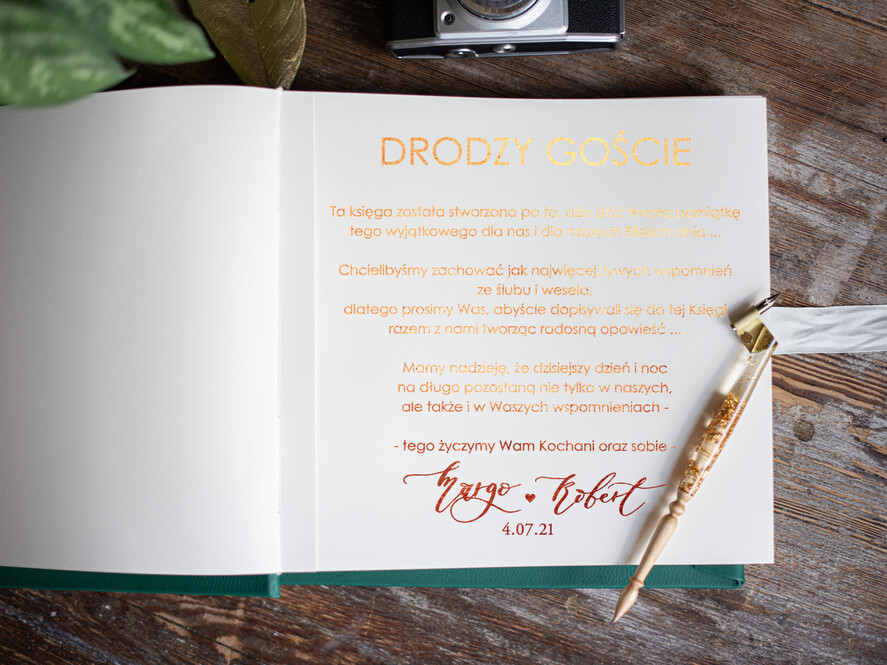 DRODZY GOŚCIE
Ta księga została stworzona po to, aby dać trwałą pamiątkę
tego wyjątkowego dla nas i dla naszych Bliskich dnia ...
Chcielibyśmy zachować jak najwięcej żywych wspomnień
ze ślubu i wesela,
dlatego prosimy Was, abyście dopisywali się do tej Księgi
razem z nami tworząc radosną opowieść ...
Mamy nadzieję, że dzisiejszy dzień i noc
na długo pozostaną nie tylko w naszych,
ale także i w Waszych wspomnieniach -
- tego życzymy Wam Kochani oraz sobie -
Margo ♥ Robert
4.07.21